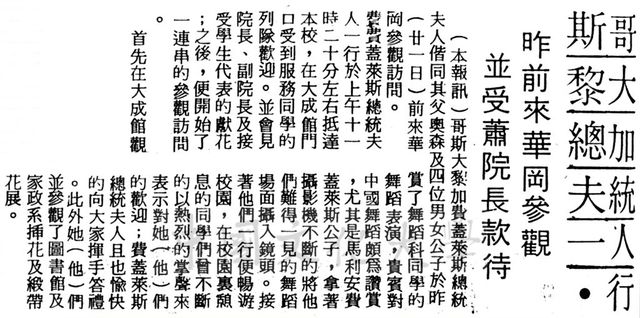 哥大加統人行
斯黎總夫一．
昨前來華岡參觀
並受蕭院長款待
（本報訊）哥斯大黎加費蓋萊斯總統
夫人偕同其父奧森及四位男女公子於昨
（廿一日）前來華
岡參觀訪問。
費費蓋萊斯總統夫
人一行於上午十一
時二十分左右抵達
本校，在大成館門
口受到服務同學的
列隊歡迎。並會見
院長、副院長及接
受學生代表的獻花
；之後，便開始了
一連串的參觀訪問
。
首先在大成館觀
賞了舞蹈科同學的
舞蹈表演，貴賓對
中國舞蹈頗為讚賞
，尤其是馬利安費
蓋萊斯公子，拿著
攝影機不斷的將他
們難得一見的舞蹈
場面攝入鏡頭。接
著他們一行便暢遊
校園，在校園裏
息的同學們曾不斷
的以熱烈的掌聲來
表示對她（他）們
的歡迎；費蓋萊斯
總統夫人且也愉快
的向大家揮手答禮
。此外她（他）們
並參觀了圖書館及
家政系插花及緞帶
花展。